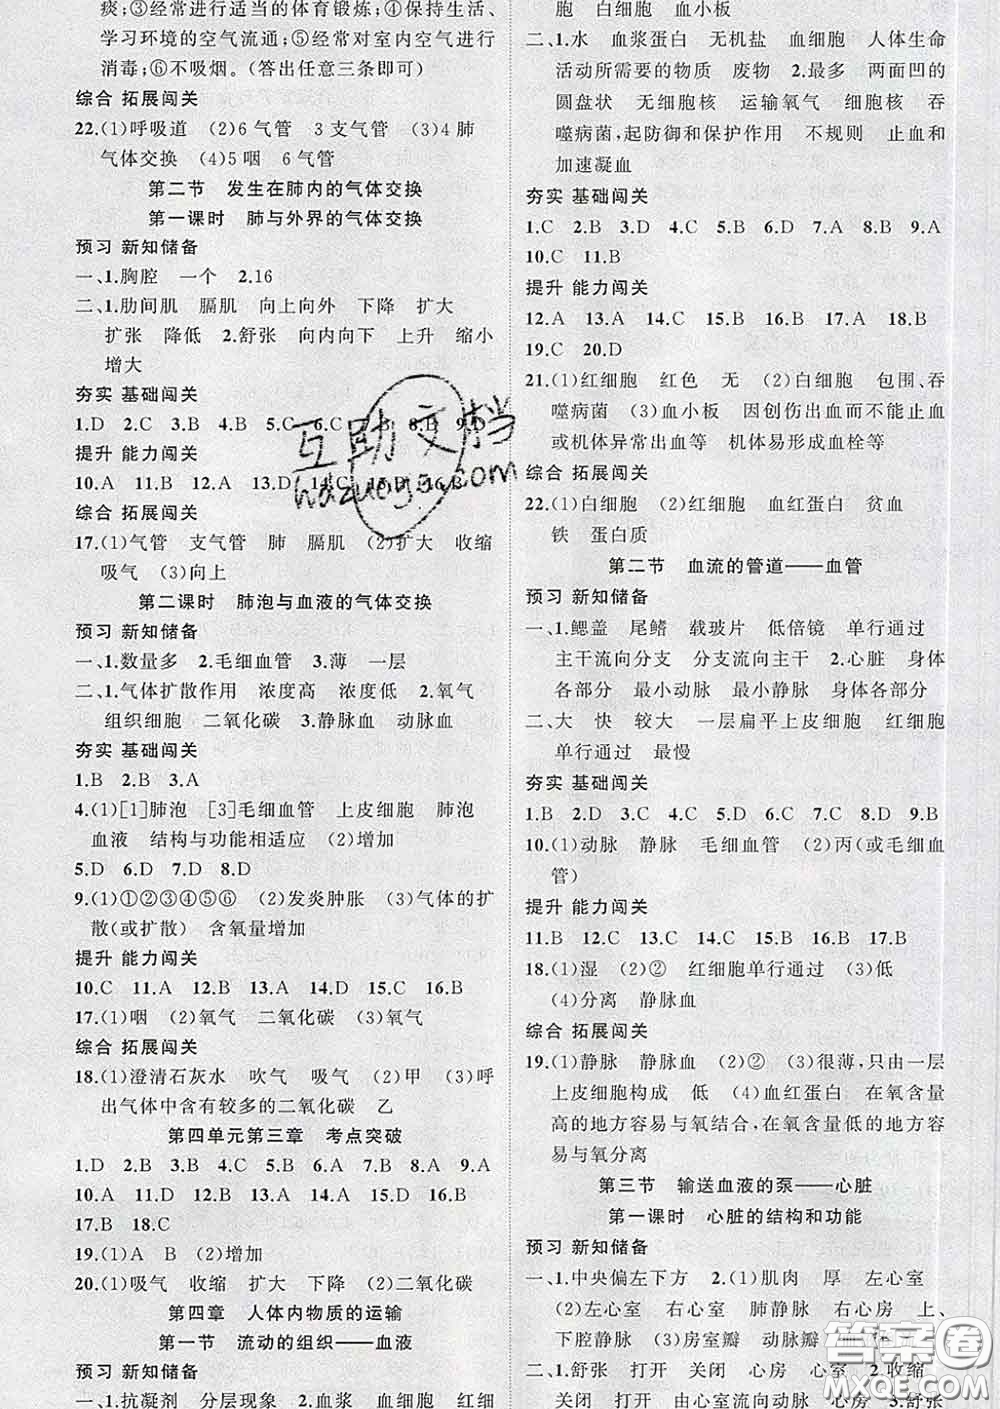 痰;③经常进行适当的体育锻炼;④保持生活、
学习环境的空气流通;⑤经常对室内空气进行
消毒;⑥不吸烟。(答出任意三条即可)
综合 拓展闯关
22.(1)呼吸道 (2)6 气管 3 支气管 (3)4 肺
气体交换 (4)5 咽 6 气管
第二节 发生在肺内的气体交换
第一课时 肺与外界的气体交换
预习 新知储备
一、1.胸腔 一个 2.16
二、1.肋间肌 膈肌 向上向外 下降 扩大
扩张 降低 2.舒张 向内向下 上升 缩小
增大
夯实 基础闯关
1.D 2.C 3.B 4.D 5.C 6.C 7.B 8.B 9.D
提升 能力闯关
10.A 11.B 12.A 13.D 14.C 15.D 16.B
综合 拓展闯关
17.(1)气管 支气管 肺 膈肌 (2)扩大 收缩
吸气 (3)向上
第二课时 肺泡与血液的气体交换
预习 新知储备
一、1.数量多 2.毛细血管 3.薄 一层
二、1.气体扩散作用 浓度高 浓度低 2.氧气
组织细胞 二氧化碳 3.静脉血 动脉血
夯实 基础闯关
1.B 2.B 3.A
4.(1)[1]肺泡 [3]毛细血管 上皮细胞 肺泡
血液 结构与功能相适应 (2)增加
5.D 6.D 7.D 8.D
9.(1)①②③④⑤⑥ (2)发炎肿胀 (3)气体的扩
散(或扩散) 含氧量增加
提升 能力闯关
10.C 11.A 12.A 13.B 14.C 15.C 16.B
17.(1)咽 (2)氧气 二氧化碳 (3)氧气
综合 拓展闯关
18.(1)澄清石灰水 吹气 吸气 (2)甲 (3)呼
出气体中含有较多的二氧化碳 乙
第四单元第三章 考点突破
1.D 2.B 3.B 4.C 5.A 6.B 7.D 8.C 9.A
10.A 11.D 12.A 13.A 14.A 15.A 16.B
17.B 18.C
19.(1)A B (2)增加
20.(1)吸气 收缩 扩大 下降 (2)二氧化碳
第四章 人体内物质的运输
第一节 流动的组织——血液
预习 新知储备
一、1.抗凝剂 分层现象 2.血浆 血细胞 红细
胞 白细胞 血小板
二、1.水 血浆蛋白 无机盐 血细胞 人体生命
活动所需要的物质 废物 2.最多 两面凹的
圆盘状 无细胞核 运输氧气 细胞核 吞
噬病菌,起防御和保护作用 不规则 止血和
加速凝血
夯实 基础闯关
1.C 2.B 3.D 4.C 5.B 6.D 7.A 8.B 9.A
10.C 11.B
提升 能力闯关
12.A 13.A 14.C 15.B 16.B 17.A 18.B
19.C 20.D
21.(1)红细胞 红色 无 (2)白细胞 包围、吞
噬病菌 (3)血小板 因创伤出血而不能止血
或机体异常出血等 机体易形成血栓等
综合 拓展闯关
22.(1)白细胞 (2)红细胞 血红蛋白 贫血
铁 蛋白质
第二节 血流的管道——血管
预习 新知储备
一、1.鳃盖 尾鳍 载玻片 低倍镜 单行通过
主干流向分支 分支流向主干 2.心脏 身体
各部分 最小动脉 最小静脉 身体各部分
二、大 快 较大 一层扁平上皮细胞 红细胞
单行通过 最慢
夯实 基础闯关
1.B 2.D 3.C 4.C 5.C 6.D 7.C 8.D 9.B
10.(1)动脉 静脉 毛细血管 (2)丙(或毛细血
管)
提升 能力闯关
11.B 12.C 13.C 14.C 15.B 16.B 17.B
18.(1)湿 (2)② 红细胞单行通过 (3)低
(4)分离 静脉血
综合 拓展闯关
19.(1)静脉 静脉血 (2)② (3)很薄,只由一层
上皮细胞构成 低 (4)血红蛋白 在氧含量
高的地方容易与氧结合,在氧含量低的地方容
易与氧分离
第三节 输送血液的泵——心脏
第一课时 心脏的结构和功能
预习 新知储备
一、1.中央偏左下方 2.(1)肌肉 厚 左心室
(2)左心室 右心室 肺静脉 右心房 上、
下腔静脉 (3)房室瓣 动脉瓣
二、1.舒张 打开 关闭 心房 心室 2.收缩
关闭 打开 由心室流向动脉 心房 3.舒张
互助文档
hdzuoye.com
答案圈
MXQE.COM